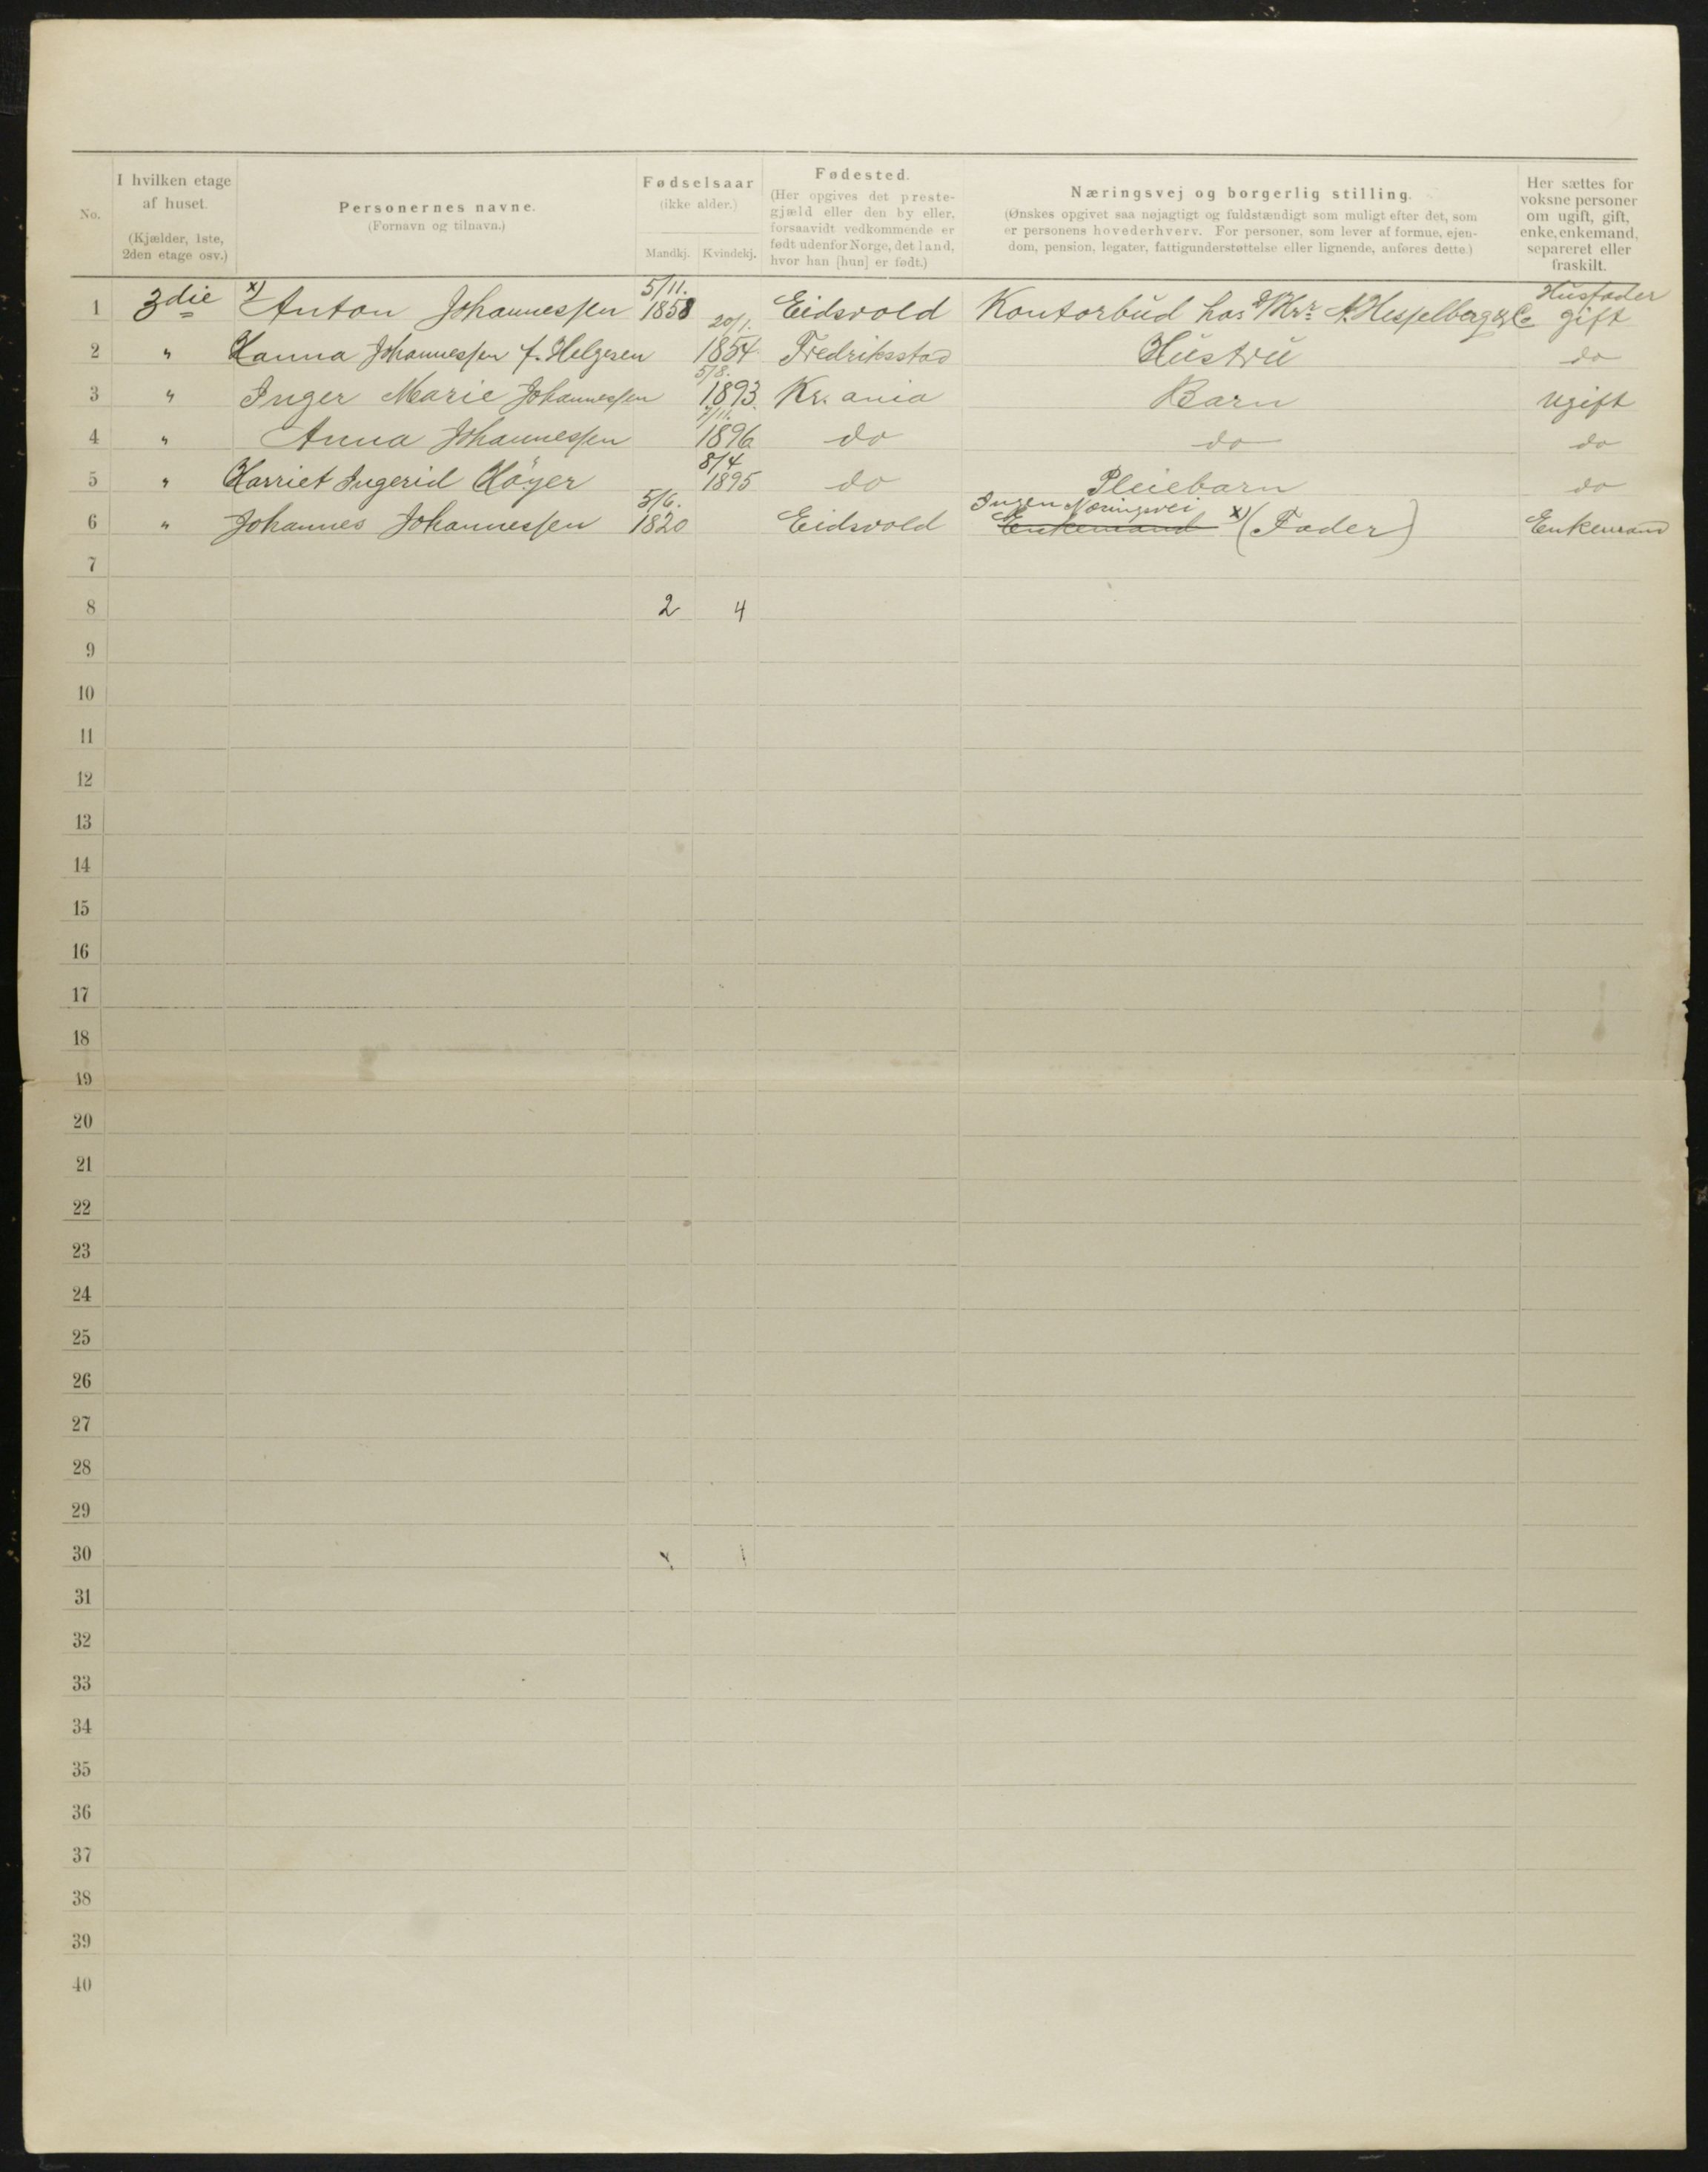 No.
I hvilken etage
af huset.
(Kjælder, 1ste,
2den etage osv.)
Personernes navne.
(Fornavn og tilnavn.)
Fødselsaar
(ikke alder.)
Mandkj. Kvindekj.
Fødested.
(Her opgives det preste-
gjæld eller den by eller,
forsaavidt vedkommende er
født udenfor Norge, det land,
hvor han [hun] er født.)
Næringsvej og borgerlig stilling.
(Ønskes opgivet saa nøjagtigt og fuldstændigt som muligt efter det, som
er personens hovederhverv. For personer, som lever af formue, ejen-
dom, pension, legater, fattigunderstøttelse eller lignende, anføres dette.)
Her sættes for
voksne personer
om ugift, gift,
enke, enkemand,
separeret eller
fraskilt.
1 3die x) Anton Johannessen 5/11. 1858 Eidsvold Kontorbud hos A. Hesselberg & Co Husfader gift
2 " Hanna Johannessen f. Helgesen 20/1. 1854 Fredriksstad Hustru do
3 " Inger Marie Johannessen 5/8. 1893 Kr. ania Barn ugift
4 " Anna Johannessen 1896 do do do
5 " Harriet Ingerid Höyer 8/4 1895 do Pleiebarn do
6 " Johannes Johannessen 5/6. 1820 Eidsvold Ingen Næringsvei Enkemand x) (Fader) Enkemand
7
8 2 4
9
10
11
12
13
14
15
16
17
18
19
20
21
22
23
24
25
26
27
28
29
30
31
32
33
34
35
36
37
38
39
40